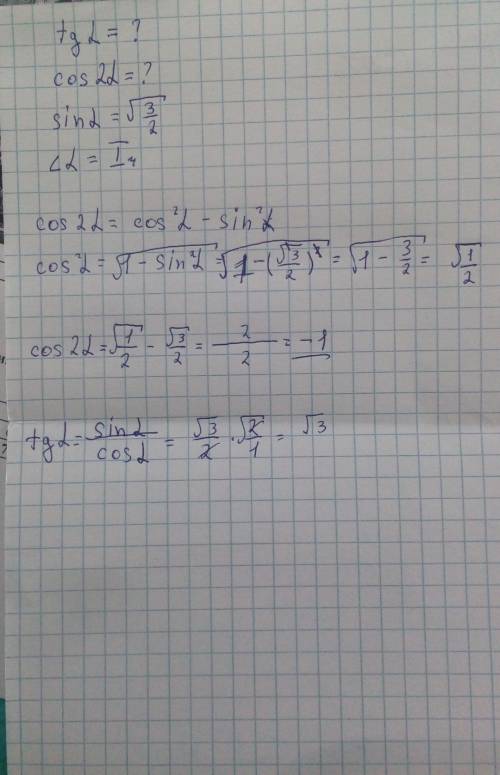 tg α = ?
cos 2α = ?
sin α = √(3/2)
∠α = I ч
cos 2α = cos²α - sin²α
cos²α = √(1 - sin²α) = √(1 - (√3/2)²) = √(1 - 3/2) = √(1/2)
cos 2α = √1/2 - √3/2 = 2/2 = -1
tg α = sin α/cos α = √3/2 · √2/1 = √3